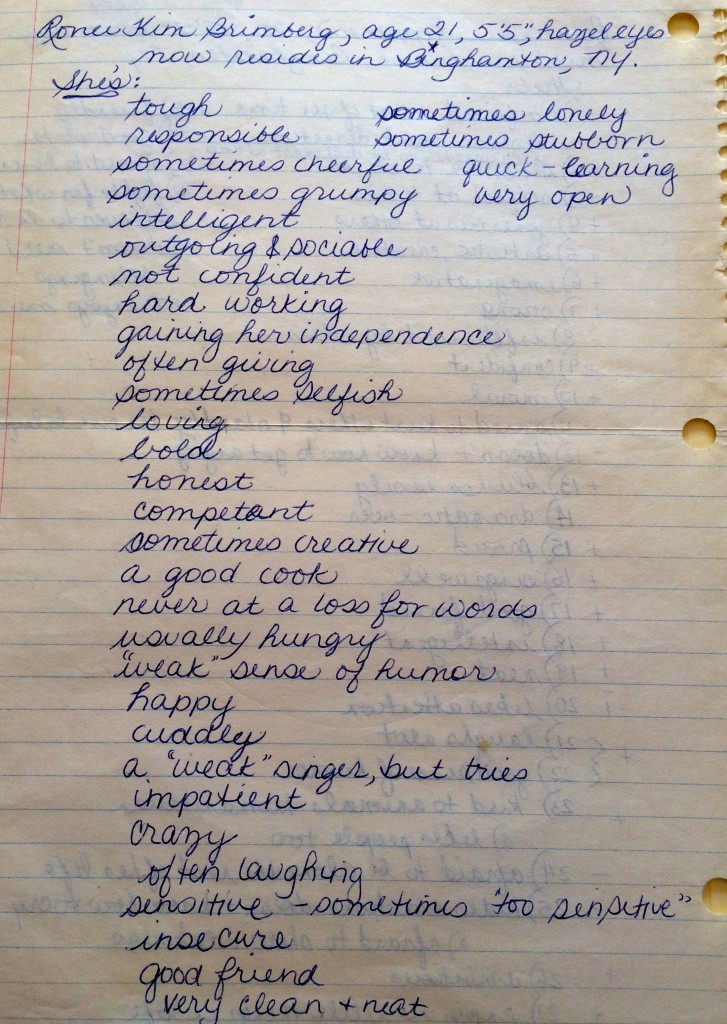 Ronei Kim Brimberg, age 21, 5'5", hazel eyes
now resides in Binghamton, NY.
She's:
tough sometimes lonely
responsible sometimes stubborn
sometimes cheerful quick-learning
sometimes grumpy very open
intelligent
outgoing & sociable
not confident
hard working
gaining her independence
often giving
sometimes selfish
loving
bold
honest
competant
sometimes creative
a good cook
never at a loss for words
usually hungry
"weak" sense of humor
happy
cuddly
a "weak" singer, but tries
impatient
crazy
often laughing
sensitive - sometimes "too sensitive"
insecure
good friend
very clean + neat